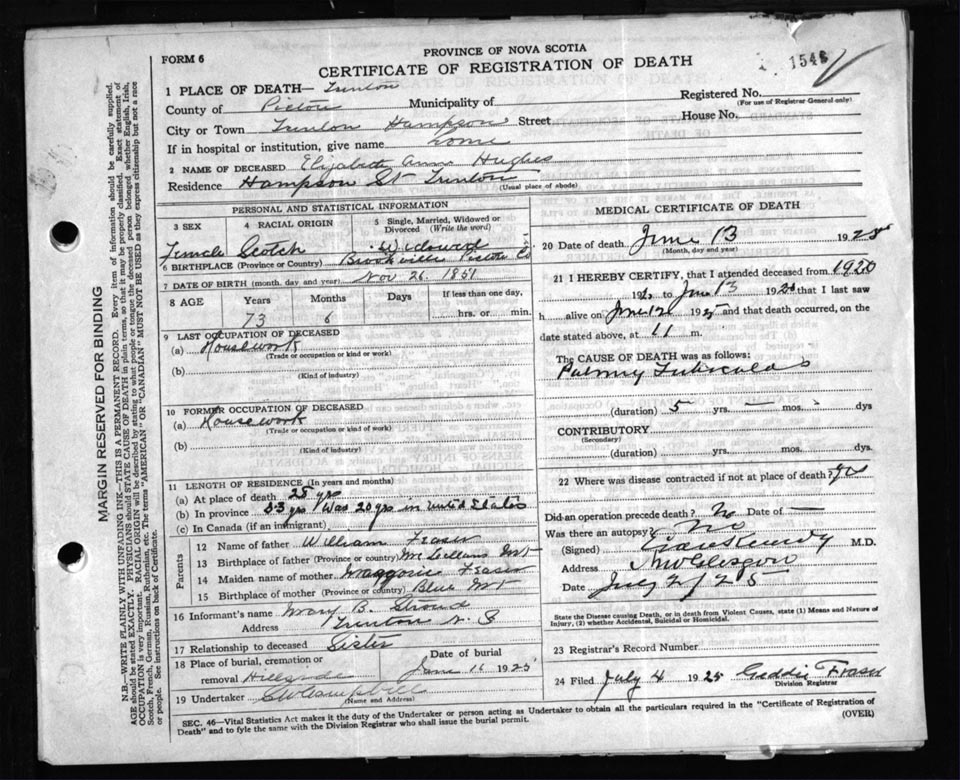 FORM 6
PROVINCE OF NOVA SCOTIA
CERTIFICATE OF REGISTRATION OF DEATH
1546
1 PLACE OF DEATH— Trenton
Registered No.
(For use of Registrar General only)
County of Pictou Municipality of
City or Town Trenton Hampson Street House No.
If in hospital or institution, give name home
2 NAME OF DECEASED Elizabeth Ann Hughes
Residence Hampson St Trenton
(Usual place of abode)
PERSONAL AND STATISTICAL INFORMATION
3 SEX 4 RACIAL ORIGIN 5 Single, Married, Widowed or Divorced (Write the word)
Female Scotch Widowed
6 BIRTHPLACE (Province or Country) Brookville Pictou Co
7 DATE OF BIRTH (month, day and year) Nov 26. 1851
8 AGE Years Months Days If less than one day,
73 6 hrs. or min.
9 LAST OCCUPATION OF DECEASED
(a) Housework
(Trade or occupation or kind or work)
(b)
(Kind of industry)
10 FORMER OCCUPATION OF DECEASED
(a) Housework
(Trade or occupation or kind or work)
(b)
(Kind of industry)
11 LENGTH OF RESIDENCE (In years and months)
(a) At place of death 25 yrs
(b) In province 53 yrs Was 20 yrs in United States
(c) In Canada (if an immigrant)
Parents
12 Name of father William Fraser
13 Birthplace of father (Province or country) Mt
14 Maiden name of mother Fraser
15 Birthplace of mother (Province or country) Blue Mt
16 Informant's name Mary B. Stroud
Address Trenton N. S
17 Relationship to deceased Sister
18 Place of burial, cremation or removal Hillside
Date of burial June 16 1925
19 Undertaker C W Campbell
(Name and Address)
MEDICAL CERTIFICATE OF DEATH
20 Date of death June 13 1925
(Month, day and year)
21 I HEREBY CERTIFY, that I attended deceased from 1920
192 to June 13 192 that I last saw
h alive on June 12 1925 and that death occurred, on the
date stated above, at 11 m.
The CAUSE OF DEATH was as follows:
Pulmry Tuberculos
(duration) 5 yrs. — mos. dys
CONTRIBUTORY
(Secondary)
(duration) yrs. mos. dys.
22 Where was disease contracted if not at place of death? yes
Did an operation precede death? No Date of —
Was there an autopsy? No
(Signed) Kennedy M.D.
Address New Glasgow
Date July 2/25
State the Disease causing Death, or in death from Violent Causes, state (1) Means and Nature of
Injury, (2) whether Accidental, Suicidal or Homicidal.
23 Registrar's Record Number
24 Filed July 4 1925 Geddie Fraser
Division Registrar
SEC. 46—Vital Statistics Act makes it the duty of the Undertaker or person acting as Undertaker to obtain all the particulars required in the "Certificate of Registration of
Death" and to fyle the same with the Division Registrar who shall issue the burial permit.
(OVER)
MARGIN RESERVED FOR BINDING
N.B.—WRITE PLAINLY WITH UNFADING INK—THIS IS A PERMANENT RECORD. Every item of information should be carefully supplied.
AGE should be stated EXACTLY. PHYSICIANS should STATE CAUSE OF DEATH in plain terms, so that it may be properly classified. Exact statement of
OCCUPATION is very important. RACIAL ORIGIN will be described by stating to what people or tongue the deceased person belonged whether English, Irish,
Scotch, French, German, Russian, Ruthenian, etc. The terms "AMERICAN" or "CANADIAN" MUST NOT BE USED as they express citizenship but not a race
or people. See instructions on back of Certificate.